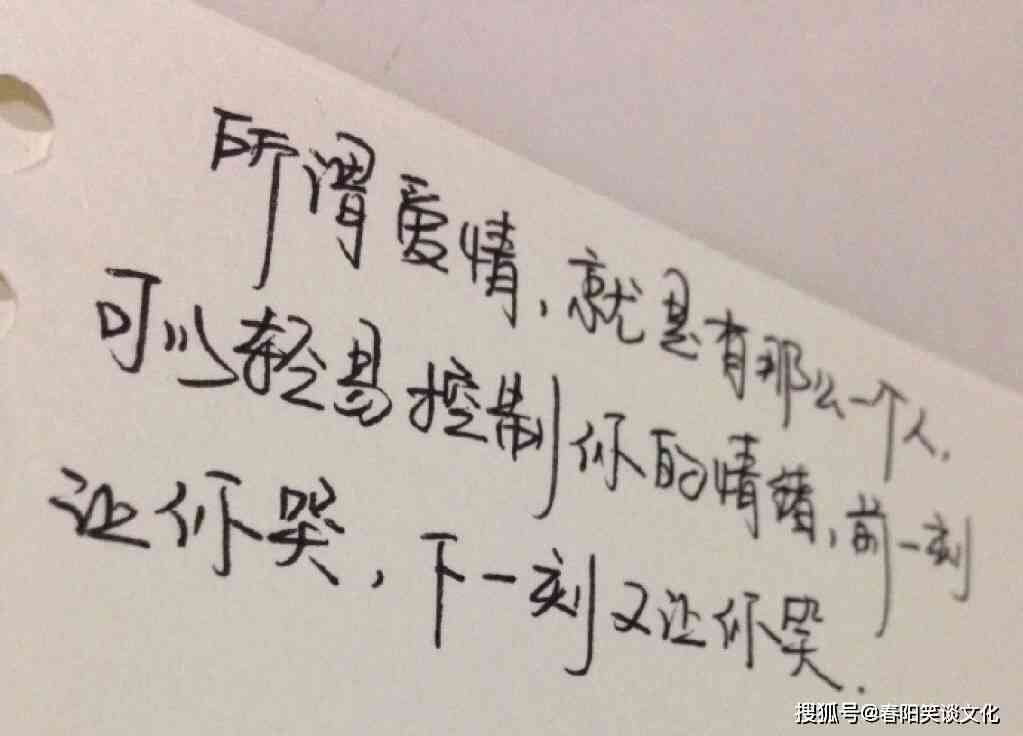 所谓爱情，就是有那么一个人，
可以轻易控制你的情绪，前一刻
让你哭，下一刻又让你哭．
搜狐号@春阳笑谈文化